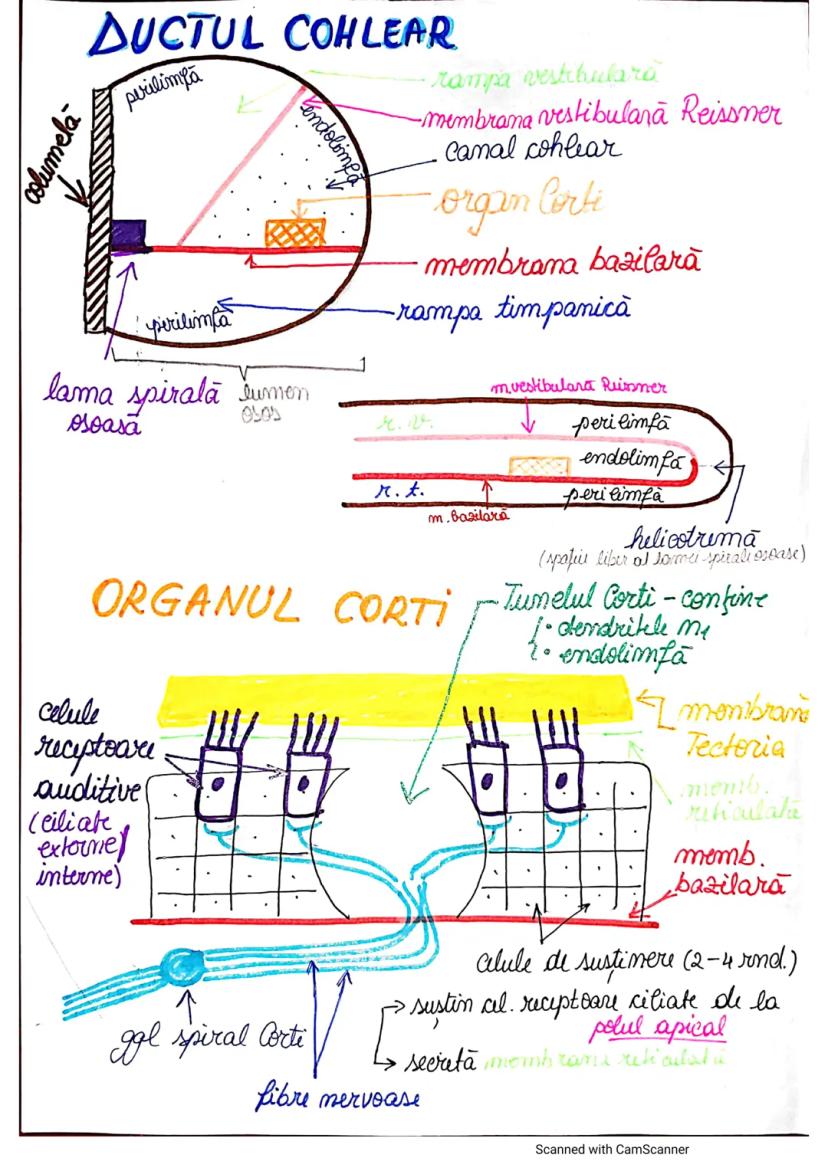 DUCTUL COHLEAR
perilimfă
rampa vestibulară
membrana vestibulară Reissner
endolimfă
canal cohlear
columelă
organ Corti
membrana bazilară
rampa timpanică
perilimfă
lama spirală
osoasă
lumen
osos
m.vestibulară Reissner
r.v.
perilimfă
endolimfă
r.t.
perilimfă
m.bazilară
helicotremă
(spațiu liber al lamei spirale osoase)
ORGANUL CORTI
Tunelul Corti - conține
• dendritele n1
• endolimfă
celule
receptoare
auditive
(ciliate
externe/
interne)
membrana
Tectoria
memb.
reticulată
memb.
bazilară
celule de susținere (2-4 rnd.)
susțin cel. receptoare ciliate de la
polul apical
secretă membrana reticulată
ggl spiral Corti
fibre nervoase
Scanned with CamScanner